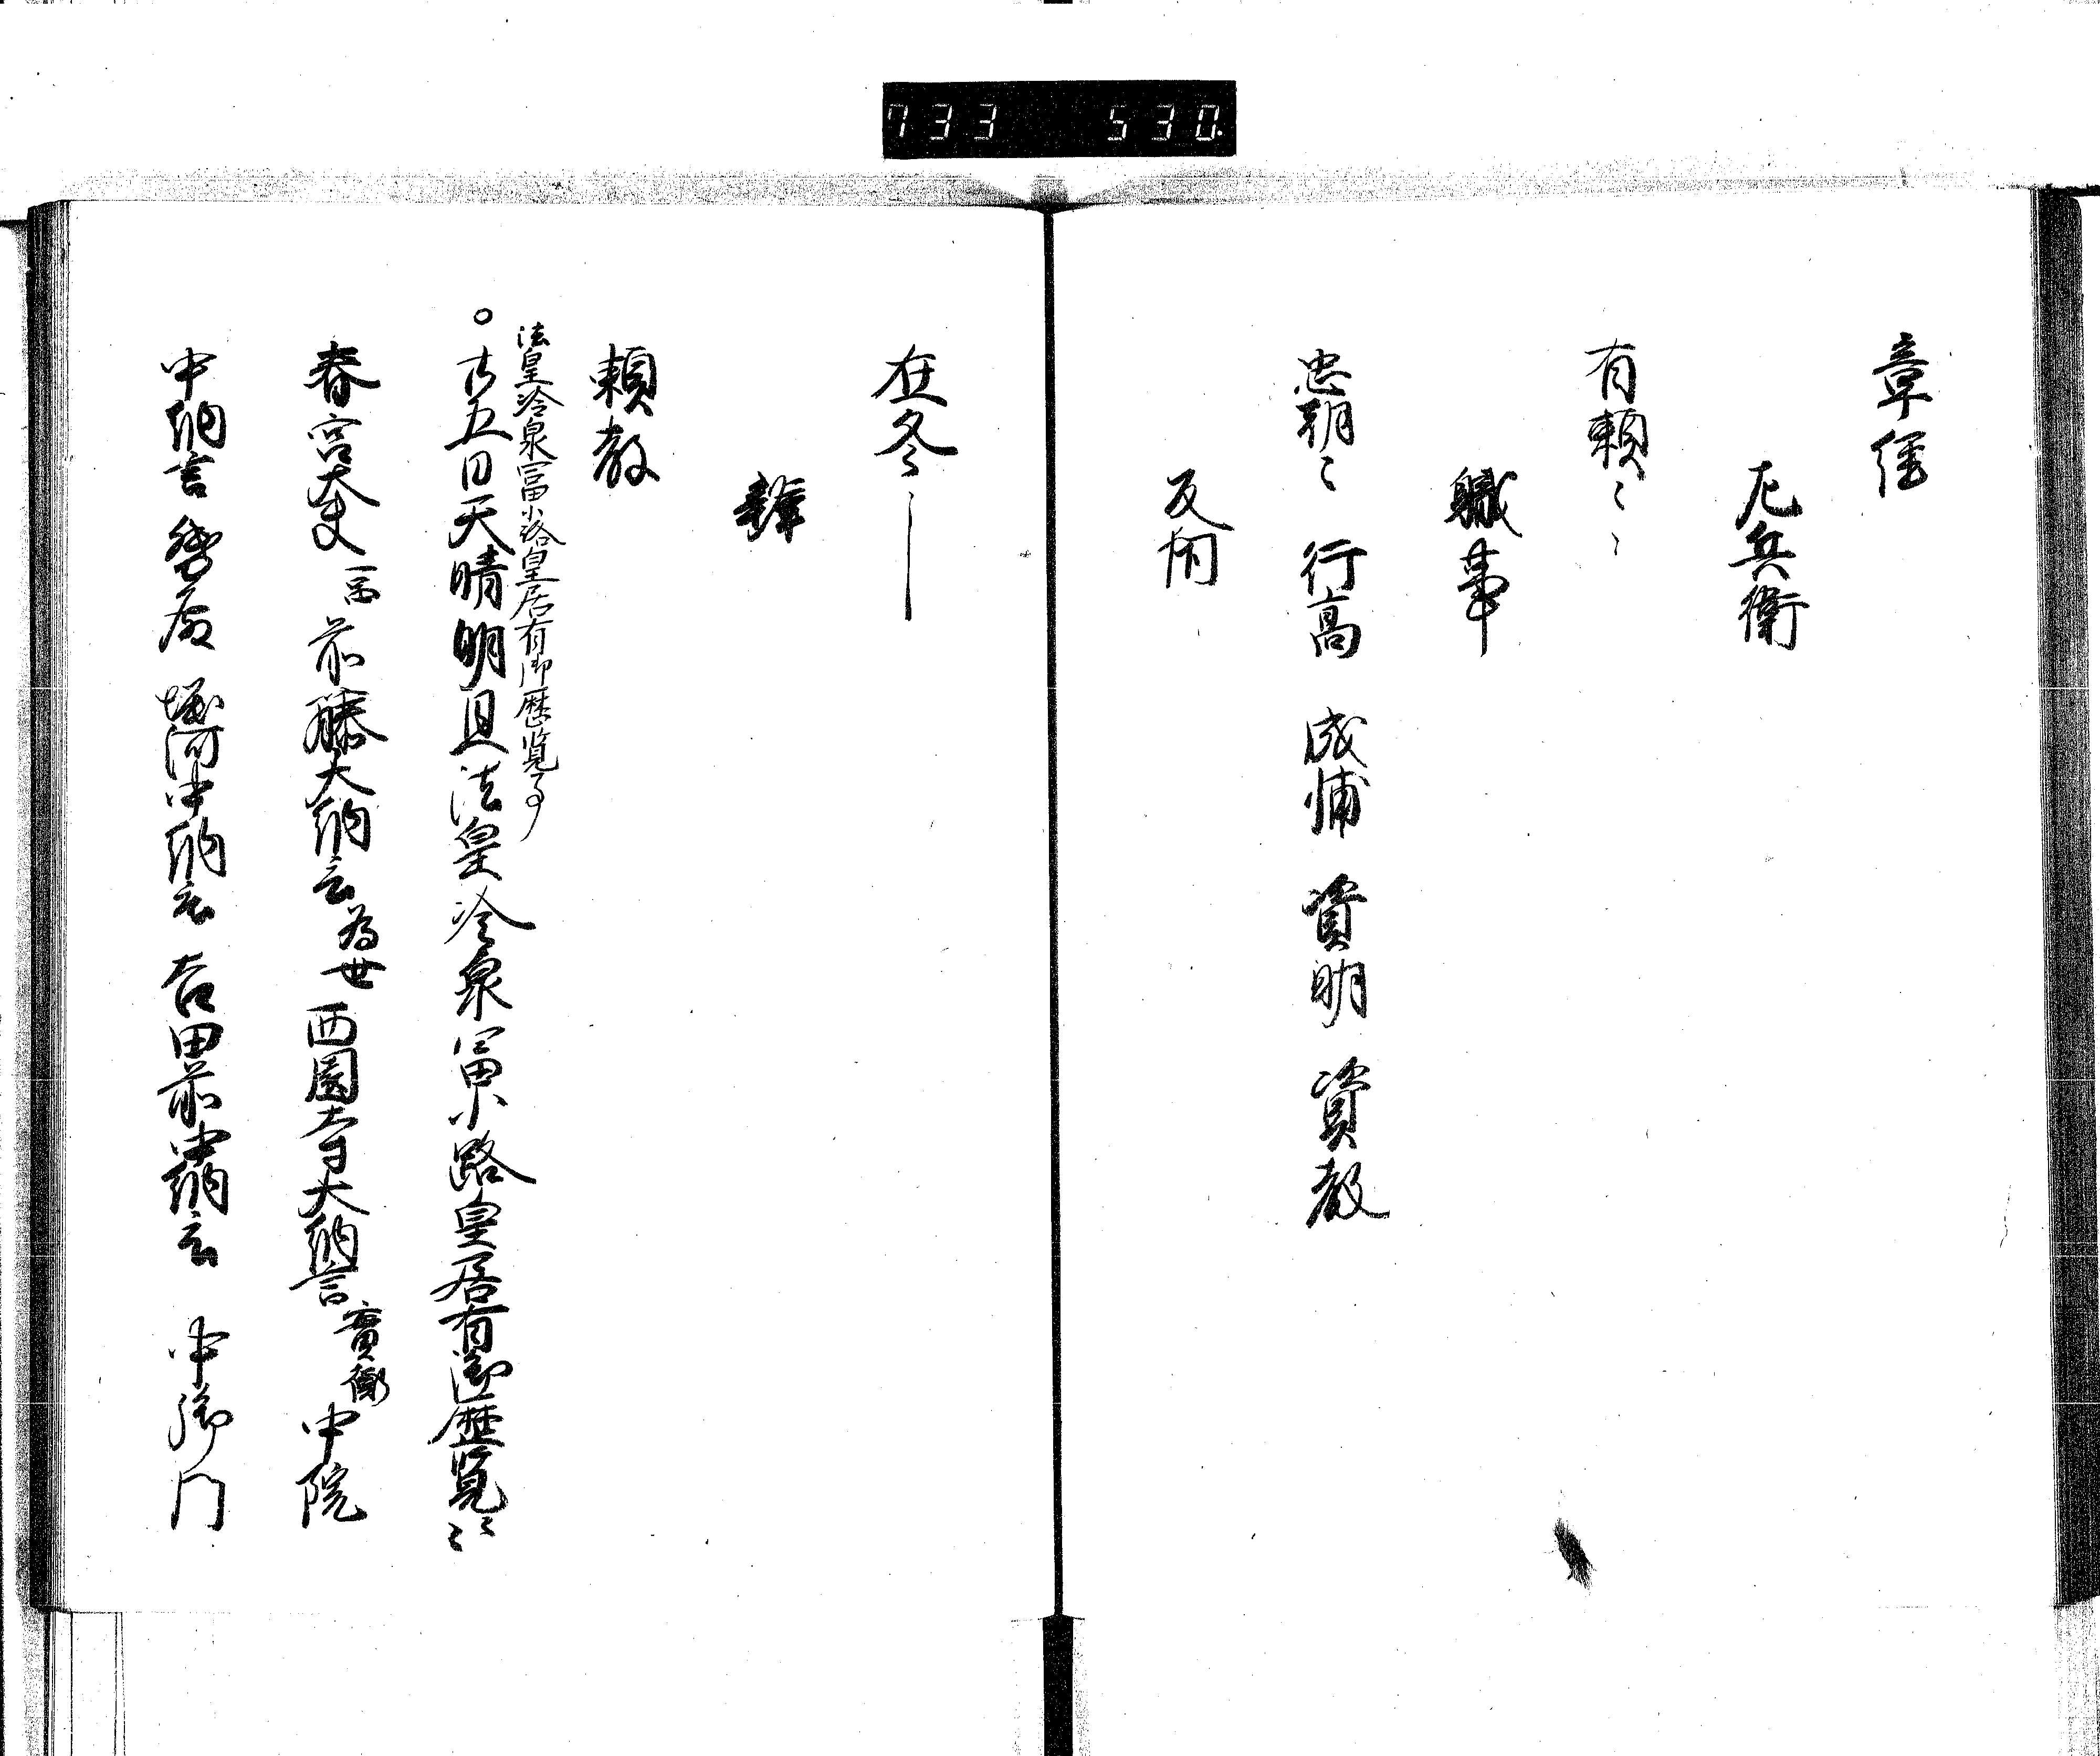 733 530.
章任
左兵衛
有頼〻〻
職事
忠朝〻 行高 成輔 資明 資教
反閇
在冬
頼教
法皇冷泉富小路皇居有御歴覧事
○廿五日天晴明旦法皇冷泉富小路皇居有御歴覧〻〻
春宮大夫 前藤大納言為世 西園寺大納言實衡 中院
中納言 堀河中納言 吉田前中納言 中御門